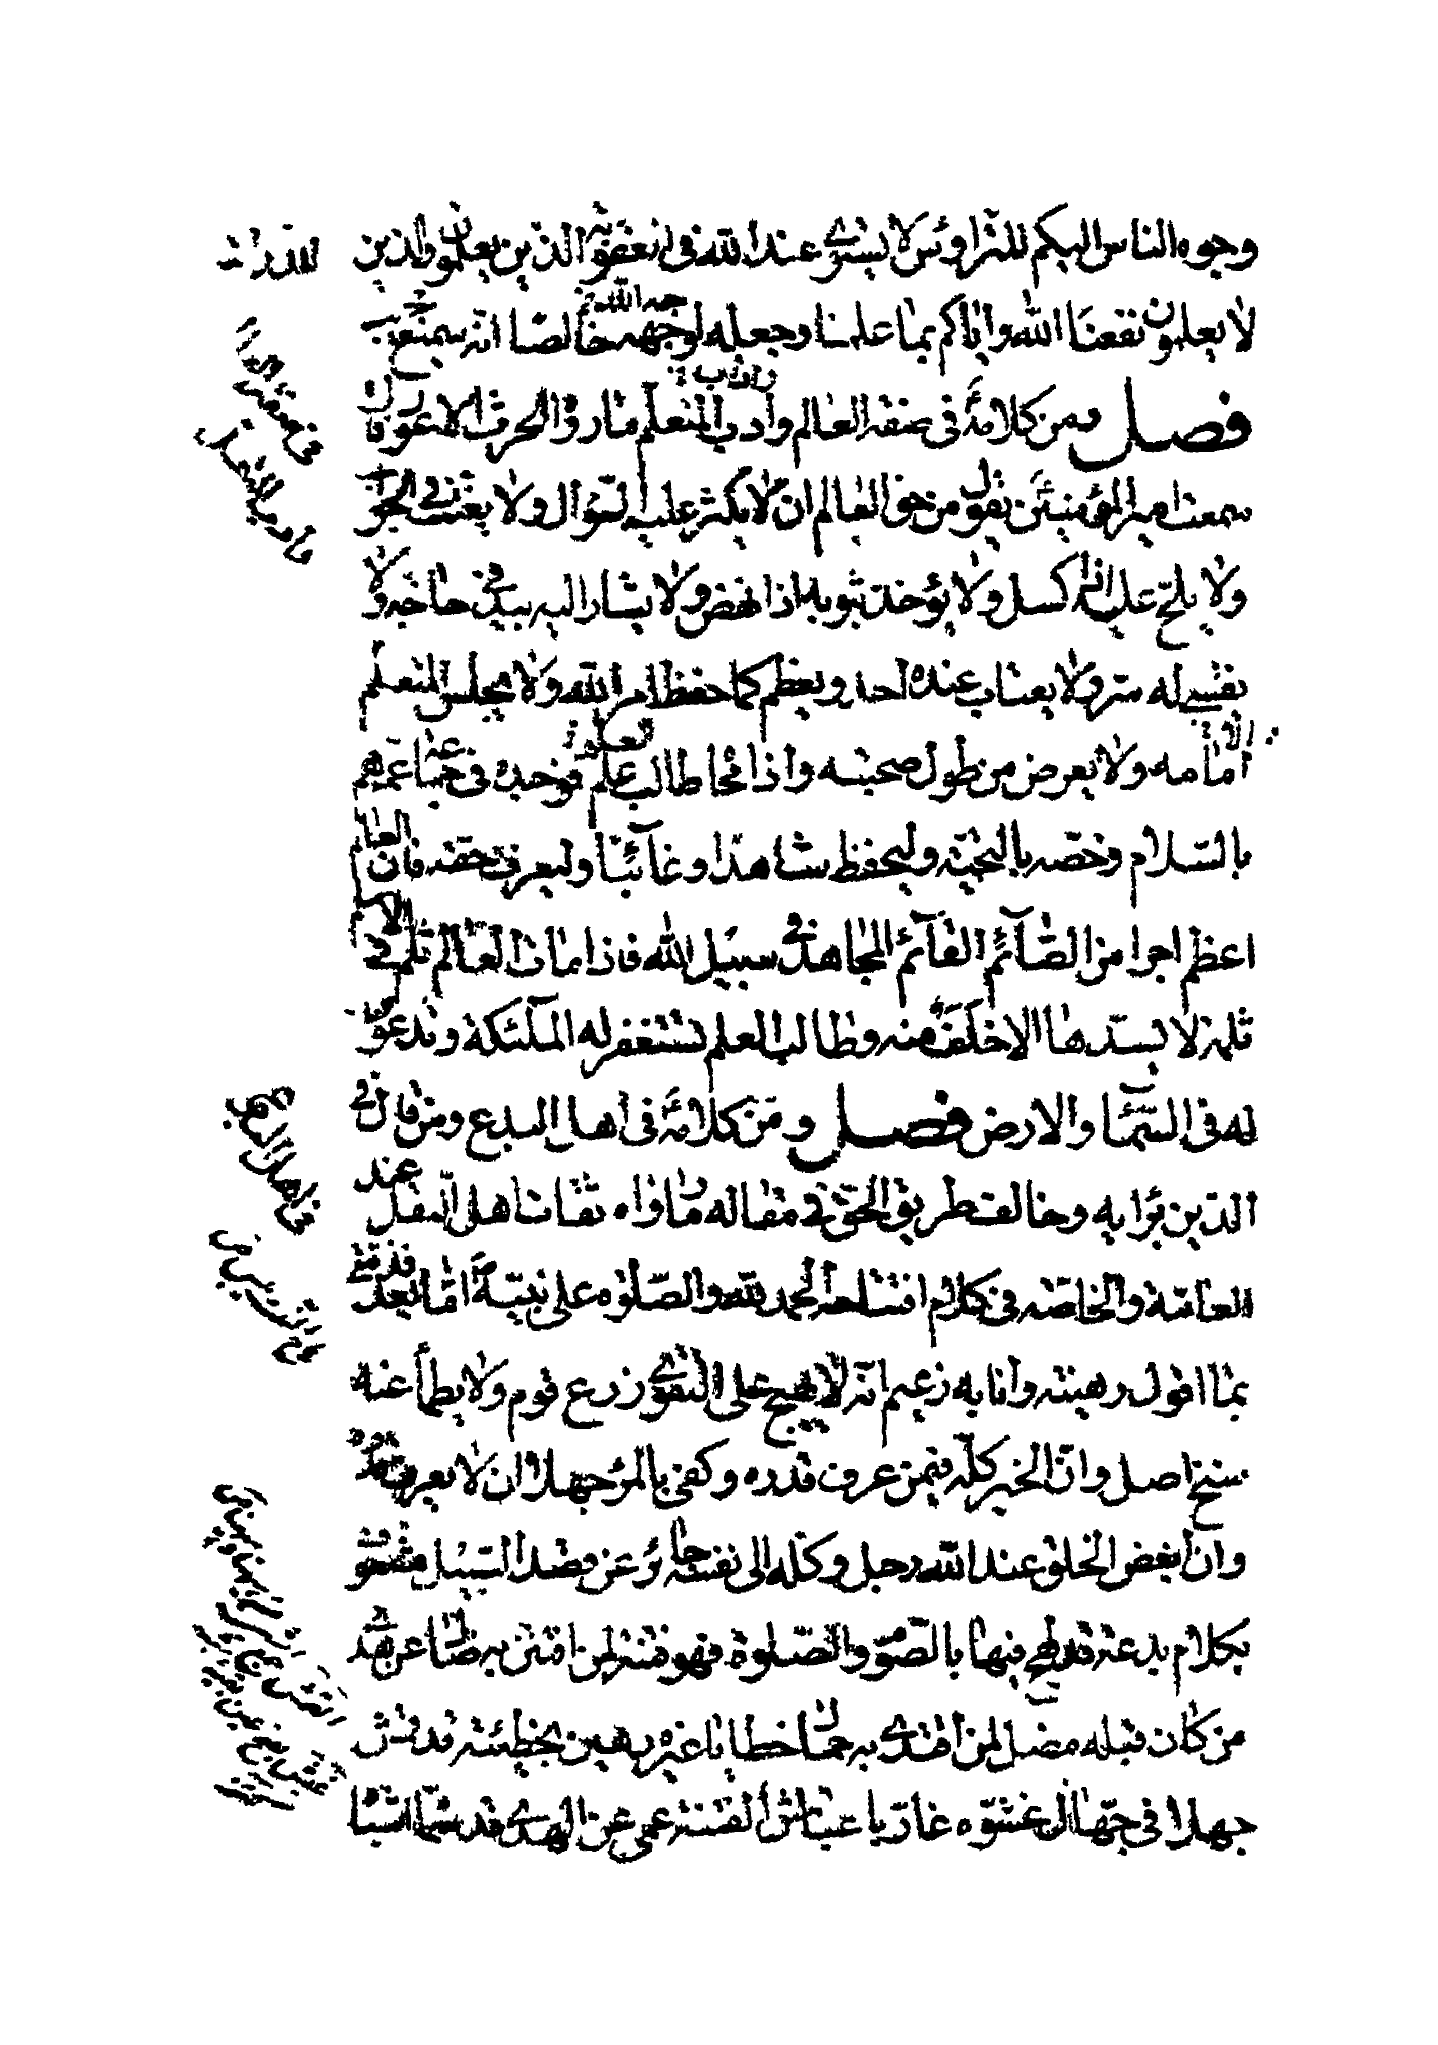 وجوه الناس اليكم للتراوس لا يستوي عند الله في العقوبة الذين يعلمون والذين
لا يعلمون نفعنا الله واياكم بما علمنا وجعله لوجهه خالصا انه سميع مجيب
فصل ومن كلامه في صفة العالم وادب المتعلم ما رواه الحرث الاعور قال
سمعت امير المؤمنين يقول من حق العالم ان لا يكثر عليه السؤال ولا يعنت في الجواب
ولا يلح عليه اذا كسل ولا يؤخذ بثوبه اذا نهض ولا يشار اليه بيد في حاجة ولا
يفشي له سر ولا يغتاب عنده احد ويعظم كما حفظ امر الله ولا يجلس المتعلم
الا امامه ولا يعرض من طول صحبته واذا جاء طالب علم فوجده في جماعة عمهم
بالسلام وخصه بالتحية وليحفظ شاهدا وغائبا وليعرف حقه فان العالم
اعظم اجرا من الصائم القائم المجاهد في سبيل الله فاذا مات العالم ثلم في الاسلام
ثلمة لا يسدها الا خلف منه وطالب العلم تستغفر له الملئكة وتدعو
له في السماء والارض فصل ومن كلامه في اهل البدع ومن قال في
الدين برايه وخالف طريق الحق في مقاله ما رواه ثقات اهل النقل عند
العامة والخاصة في كلام افتتاحه الحمد لله والصلوة على نبيه اما بعد فذمتي
بما اقول رهينة وانا به زعيم انه لا يهيج على التقوى زرع قوم ولا يظمأ عنه
سنخ اصل وان الخير كله فيمن عرف قدره وكفى بالمرء جهلا ان لا يعرف قدره
وان ابغض الخلق عند الله رجل وكله الى نفسه جائر عن قصد السبيل مشعوف
بكلام بدعة قد لهج فيها بالصوم والصلوة فهو فتنة لمن افتتن به ضال عن هدى
من كان قبله مضل لمن اقتدى به حمال خطايا غيره رهين بخطيئته قد قمش
جهلا في جهال غشوه غار باغباش الفتنة عمي عن الهدى قد سماه اشباه